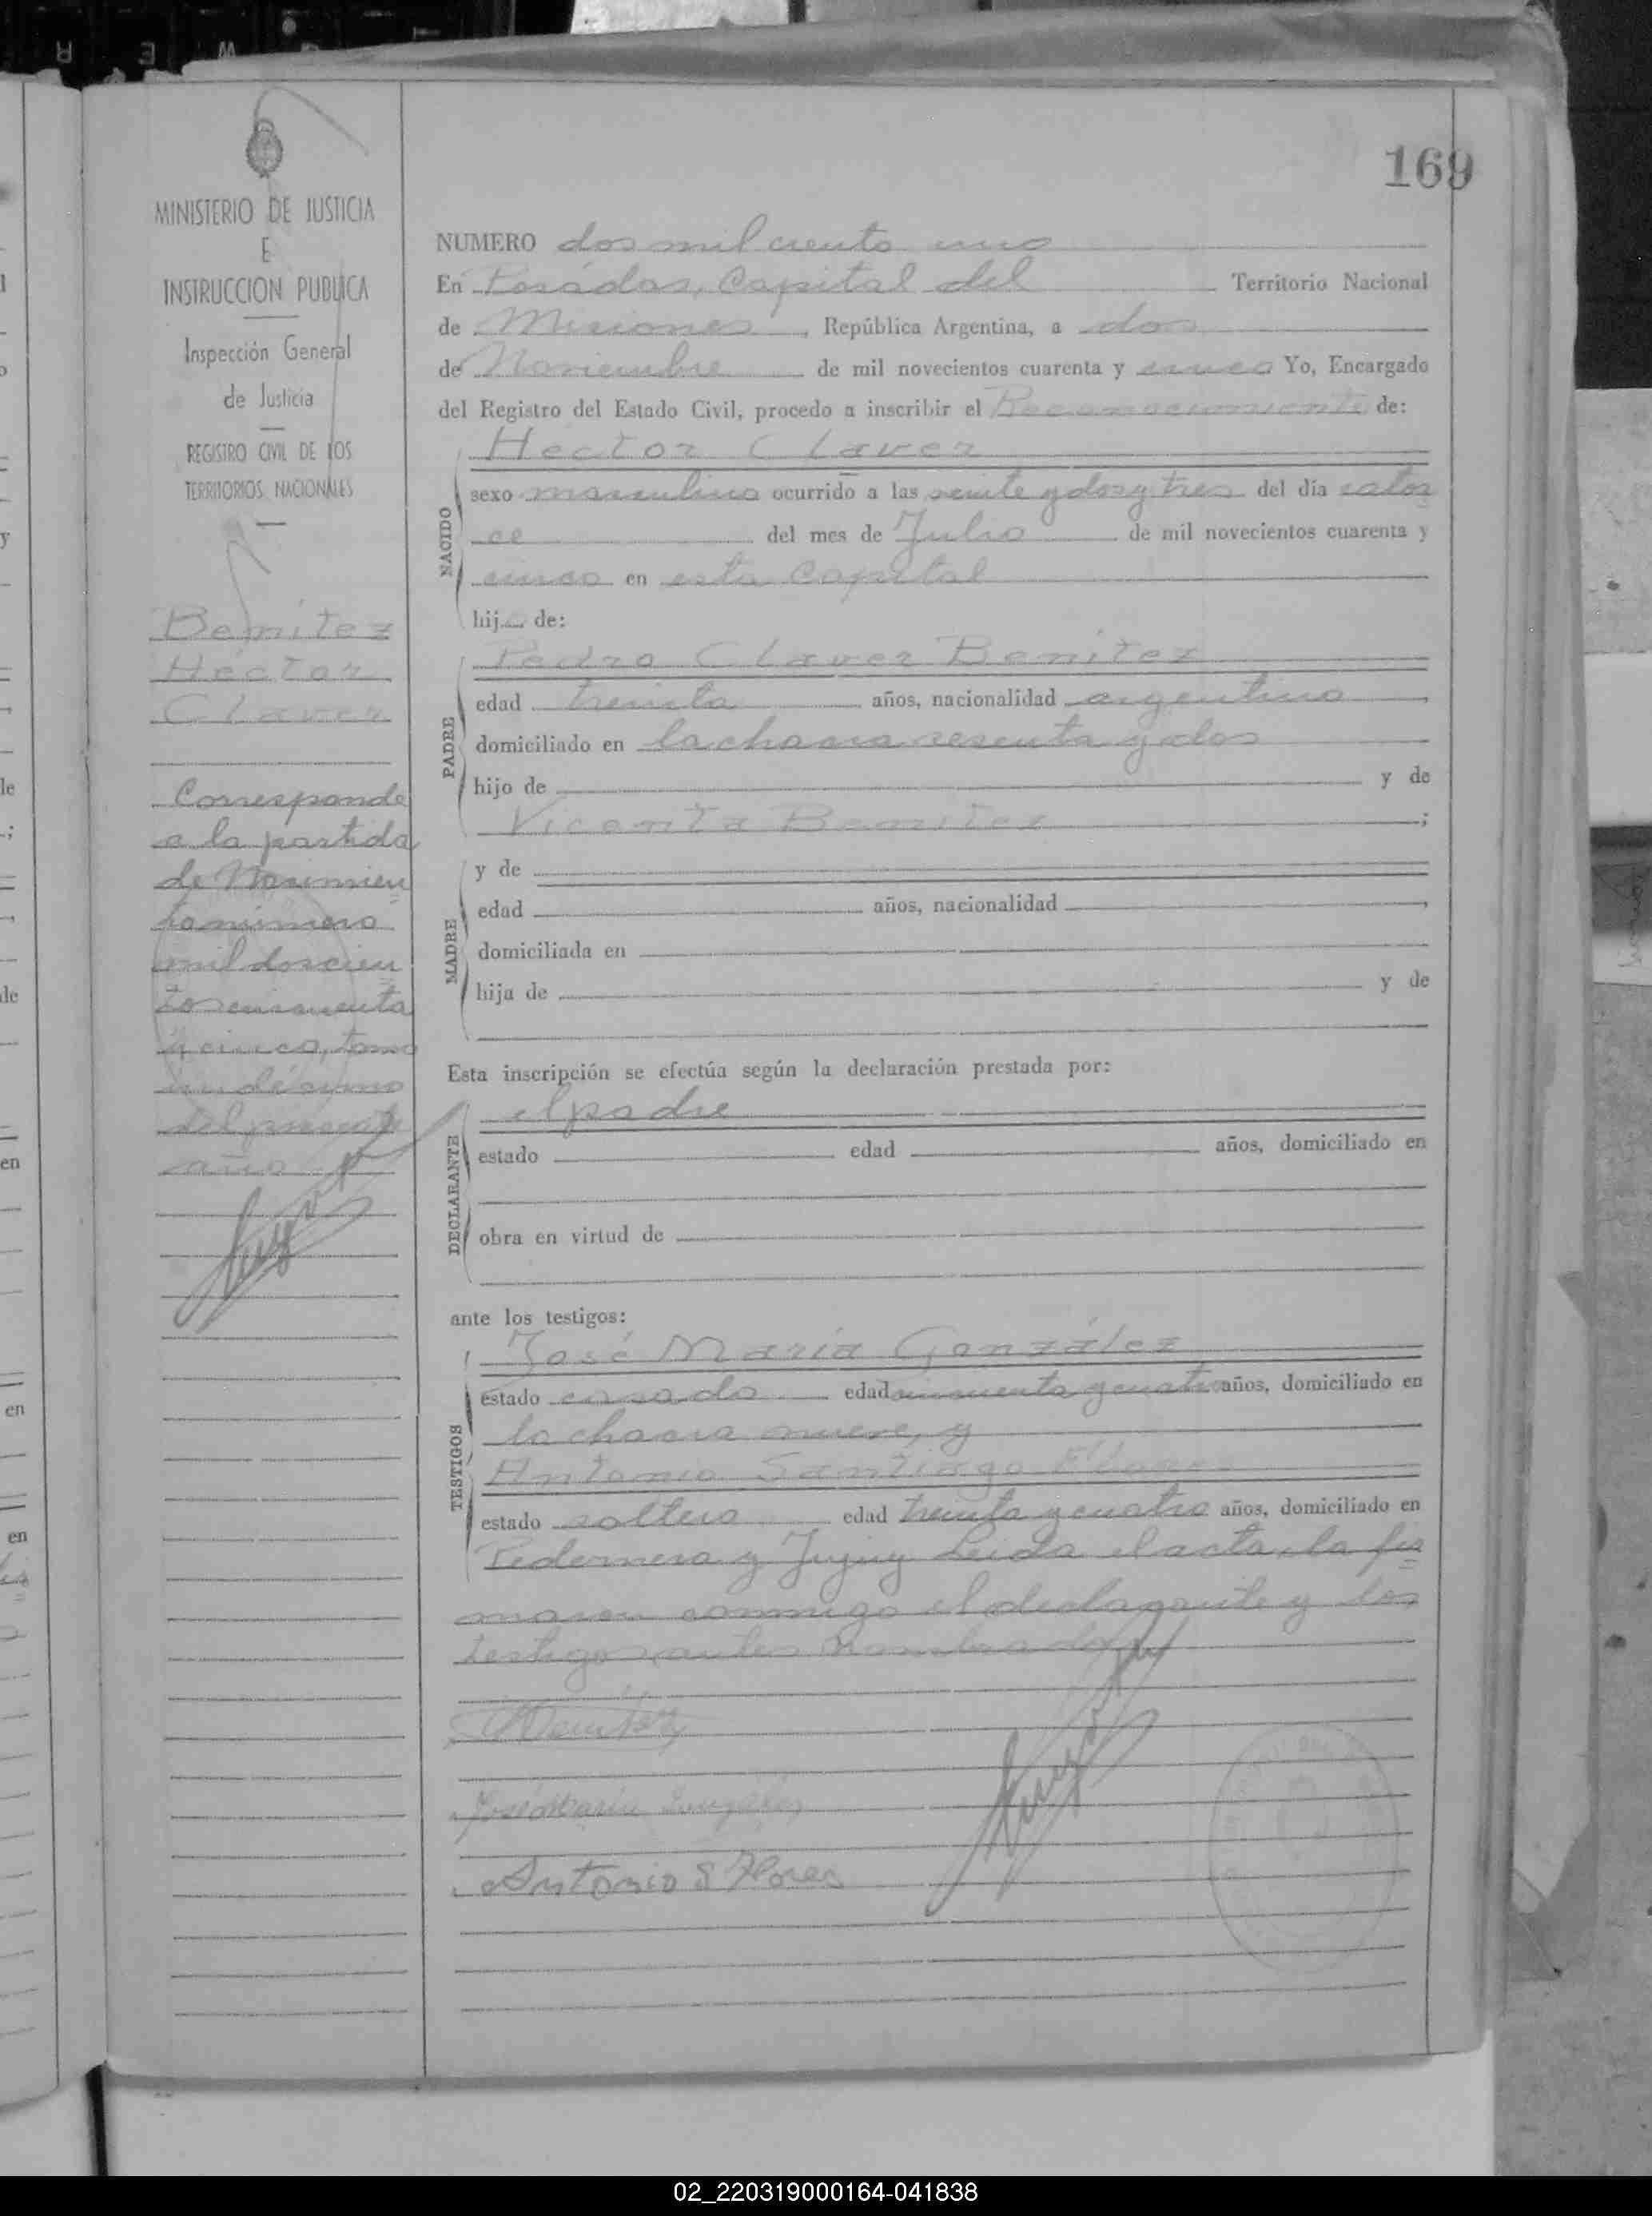 169
MINISTERIO DE JUSTICIA
E
INSTRUCCION PUBLICA
Inspección General
de Justicia
REGISTRO CIVIL DE LOS
TERRITORIOS NACIONALES
Benítez
Héctor
Claver
Corresponde
a la partida
de Nacimien
to número
mil doscien
tos cincuenta
y cinco, tomo
undécimo
del presente
año
NUMERO dos mil ciento uno
En Posadas, Capital del Territorio Nacional
de Misiones, República Argentina, a dos
de Noviembre de mil novecientos cuarenta y cinco Yo, Encargado
del Registro del Estado Civil, procedo a inscribir el Reconocimiento de:
NACIDO
Hector Claver
sexo masculino ocurrido a las veinte y dos y tres del día cator
ce del mes de Julio de mil novecientos cuarenta y
cinco en esta Capital
hij de:
PADRE
Pedro Claver Benitez
edad treinta años, nacionalidad argentino
domiciliado en la chacra sesenta y dos
hijo de y de
Vicenta Benitez ;
MADRE
y de
edad años, nacionalidad
domiciliada en
hija de y de
Esta inscripción se efectúa según la declaración prestada por:
DECLARANTE
el padre
estado edad años, domiciliado en
obra en virtud de
ante los testigos:
TESTIGOS
José María González
estado casado edad cincuenta y cuatro años, domiciliado en
la chacra nueve, y
Antonio Santiago Flores
estado soltero edad treinta y cuatro años, domiciliado en
Pedernera y Jujuy Leida el acta, la fir
maron conmigo el declarante y los
testigos antes nombrados
José María González
Antonio S Flores
02_220319000164-041838